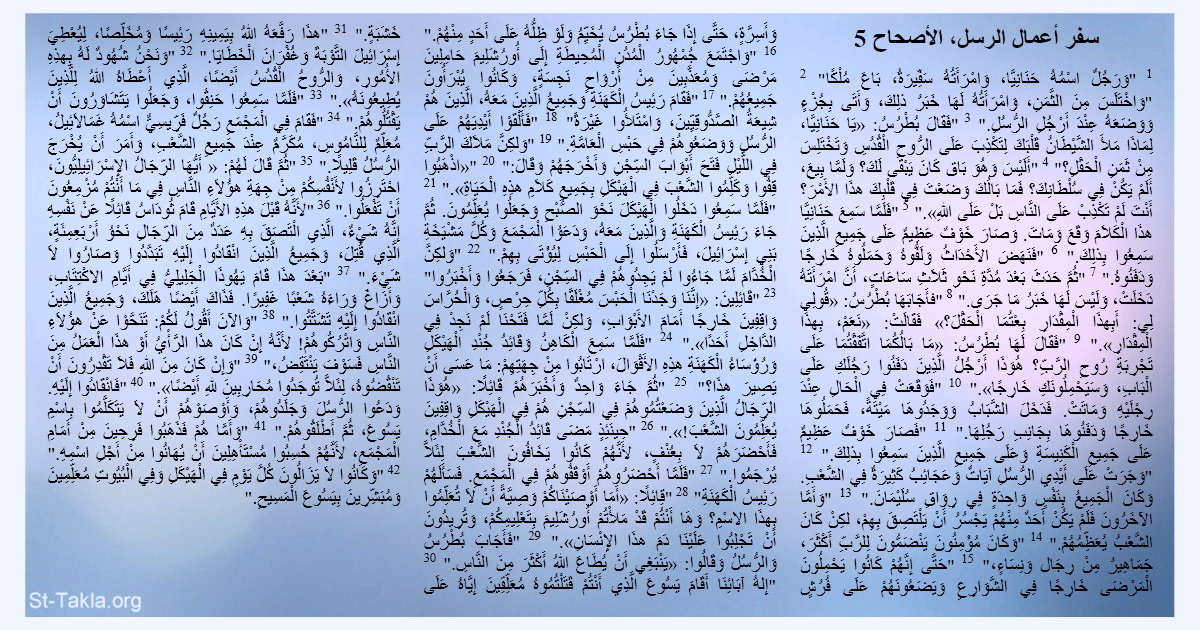 سفر أعمال الرسل، الأصحاح 5
1 "وَرَجُلٌ اسْمُهُ حَنَانِيَّا، وَامْرَأَتُهُ سَفِّيرَةُ، بَاعَ مُلْكًا" 2
"وَاخْتَلَسَ مِنَ الثَّمَنِ، وَامْرَأَتُهُ لَهَا خَبَرُ ذلِكَ، وَأَتَى بِجُزْءٍ
وَوَضَعَهُ عِنْدَ أَرْجُلِ الرُّسُلِ." 3 "فَقَالَ بُطْرُسُ: «يَا حَنَانِيَّا،
لِمَاذَا مَلأَ الشَّيْطَانُ قَلْبَكَ لِتَكْذِبَ عَلَى الرُّوحِ الْقُدُسِ وَتَخْتَلِسَ
مِنْ ثَمَنِ الْحَقْلِ؟" 4 "أَلَيْسَ وَهُوَ بَاق كَانَ يَبْقَى لَكَ؟ وَلَمَّا بِيعَ،
أَلَمْ يَكُنْ فِي سُلْطَانِكَ؟ فَمَا بَالُكَ وَضَعْتَ فِي قَلْبِكَ هذَا الأَمْرَ؟
أَنْتَ لَمْ تَكْذِبْ عَلَى النَّاسِ بَلْ عَلَى اللهِ»." 5 "فَلَمَّا سَمِعَ حَنَانِيَّا
هذَا الْكَلاَمَ وَقَعَ وَمَاتَ. وَصَارَ خَوْفٌ عَظِيمٌ عَلَى جَمِيعِ الَّذِينَ
سَمِعُوا بِذلِكَ." 6 "فَنَهَضَ الأَحْدَاثُ وَلَفُّوهُ وَحَمَلُوهُ خَارِجًا
وَدَفَنُوهُ." 7 "ثُمَّ حَدَثَ بَعْدَ مُدَّةِ نَحْوِ ثَلاَثِ سَاعَاتٍ، أَنَّ امْرَأَتَهُ
دَخَلَتْ، وَلَيْسَ لَهَا خَبَرُ مَا جَرَى." 8 "فأَجَابَهَا بُطْرُسُ: «قُولِي
لِي: أَبِهذَا الْمِقْدَارِ بِعْتُمَا الْحَقْلَ؟» فَقَالَتْ: «نَعَمْ، بِهذَا
الْمِقْدَارِ»." 9 "فَقَالَ لَهَا بُطْرُسُ: «مَا بَالُكُمَا اتَّفَقْتُمَا عَلَى
تَجْرِبَةِ رُوحِ الرَّبِّ؟ هُوَذَا أَرْجُلُ الَّذِينَ دَفَنُوا رَجُلَكِ عَلَى
الْبَابِ، وَسَيَحْمِلُونَكِ خَارِجًا»." 10 "فَوَقَعَتْ فِي الْحَالِ عِنْدَ
رِجْلَيْهِ وَمَاتَتْ. فَدَخَلَ الشَّبَابُ وَوَجَدُوهَا مَيْتَةً، فَحَمَلُوهَا
خَارِجًا وَدَفَنُوهَا بِجَانِبِ رَجُلِهَا." 11 "فَصَارَ خَوْفٌ عَظِيمٌ
عَلَى جَمِيعِ الْكَنِيسَةِ وَعَلَى جَمِيعِ الَّذِينَ سَمِعُوا بِذلِكَ." 12
"وَجَرَتْ عَلَى أَيْدِي الرُّسُلِ آيَاتٌ وَعَجَائِبُ كَثِيرَةٌ فِي الشَّعْبِ.
وَكَانَ الْجَمِيعُ بِنَفْسٍ وَاحِدَةٍ فِي رِوَاقِ سُلَيْمَانَ." 13 "وَأَمَّا
الآخَرُونَ فَلَمْ يَكُنْ أَحَدٌ مِنْهُمْ يَجْسُرُ أَنْ يَلْتَصِقَ بِهِمْ، لكِنْ كَانَ
الشَّعْبُ يُعَظِّمُهُمْ." 14 "وَكَانَ مُؤْمِنُونَ يَنْضَمُّونَ لِلرَّبِّ أَكْثَرَ،
جَمَاهِيرُ مِنْ رِجَال وَنِسَاءٍ،" 15 "حَتَّى إِنَّهُمْ كَانُوا يَحْمِلُونَ
الْمَرْضَى خَارِجًا فِي الشَّوَارِعِ وَيَضَعُونَهُمْ عَلَى فُرُشٍ
وَأَسِرَّةٍ، حَتَّى إِذَا جَاءَ بُطْرُسُ يُخَيِّمُ وَلَوْ ظِلُّهُ عَلَى أَحَدٍ مِنْهُمْ."
16 "وَاجْتَمَعَ جُمْهُورُ الْمُدُنِ الْمُحِيطَةِ إِلَى أُورُشَلِيمَ حَامِلِينَ
مَرْضَى وَمُعَذَّبِينَ مِنْ أَرْوَاحٍ نَجِسَةٍ، وَكَانُوا يُبْرَأُونَ
جَمِيعُهُمْ." 17 "فَقَامَ رَئِيسُ الْكَهَنَةِ وَجَمِيعُ الَّذِينَ مَعَهُ، الَّذِينَ هُمْ
شِيعَةُ الصَّدُّوقِيِّينَ، وَامْتَلأُوا غَيْرَةً" 18 "فَأَلْقَوْا أَيْدِيَهُمْ عَلَى
الرُّسُلِ وَوَضَعُوهُمْ فِي حَبْسِ الْعَامَّةِ." 19 "وَلكِنَّ مَلاَكَ الرَّبِّ
فِي اللَّيْلِ فَتَحَ أَبْوَابَ السِّجْنِ وَأَخْرَجَهُمْ وَقَالَ:" 20 "«اذْهَبُوا
قِفُوا وَكَلِّمُوا الشَّعْبَ فِي الْهَيْكَلِ بِجَمِيعِ كَلاَمِ هذِهِ الْحَيَاةِ»." 21
"فَلَمَّا سَمِعُوا دَخَلُوا الْهَيْكَلَ نَحْوَ الصُّبْحِ وَجَعَلُوا يُعَلِّمُونَ. ثُمَّ
جَاءَ رَئِيسُ الْكَهَنَةِ وَالَّذِينَ مَعَهُ، وَدَعَوُا الْمَجْمَعَ وَكُلَّ مَشْيَخَةِ
بَنِي إِسْرَائِيلَ، فَأَرْسَلُوا إِلَى الْحَبْسِ لِيُؤْتَى بِهِمْ." 22 "وَلكِنَّ
الْخُدَّامَ لَمَّا جَاءُوا لَمْ يَجِدُوهُمْ فِي السِّجْنِ، فَرَجَعُوا وَأَخْبَرُوا"
23 "قَائِلِينَ: «إِنَّنَا وَجَدْنَا الْحَبْسَ مُغْلَقًا بِكُلِّ حِرْصٍ، وَالْحُرَّاسَ
وَاقِفِينَ خَارِجًا أَمَامَ الأَبْوَابِ، وَلكِنْ لَمَّا فَتَحْنَا لَمْ نَجِدْ فِي
الدَّاخِلِ أَحَدًا»." 24 "فَلَمَّا سَمِعَ الْكَاهِنُ وَقَائِدُ جُنْدِ الْهَيْكَلِ
وَرُؤَسَاءُ الْكَهَنَةِ هذِهِ الأَقْوَالَ، ارْتَابُوا مِنْ جِهَتِهِمْ: مَا عَسَى أَنْ
يَصِيرَ هذَا؟" 25 "ثُمَّ جَاءَ وَاحِدٌ وَأَخْبَرَهُمْ قَائِلًا: «هُوَذَا
الرِّجَالُ الَّذِينَ وَضَعْتُمُوهُمْ فِي السِّجْنِ هُمْ فِي الْهَيْكَلِ وَاقِفِينَ
يُعَلِّمُونَ الشَّعْبَ!»." 26 "حِينَئِذٍ مَضَى قَائِدُ الْجُنْدِ مَعَ الْخُدَّامِ،
فَأَحْضَرَهُمْ لاَ بِعُنْفٍ، لأَنَّهُمْ كَانُوا يَخَافُونَ الشَّعْبَ لِئَلاَّ
يُرْجَمُوا." 27 "فَلَمَّا أَحْضَرُوهُمْ أَوْقَفُوهُمْ فِي الْمَجْمَعِ. فَسَأَلَهُمْ
رَئِيسُ الْكَهَنَةِ" 28 "قَائِلًا: «أَمَا أَوْصَيْنَاكُمْ وَصِيَّةً أَنْ لاَ تُعَلِّمُوا
بِهذَا الاسْمِ؟ وَهَا أَنْتُمْ قَدْ مَلأْتُمْ أُورُشَلِيمَ بِتَعْلِيمِكُمْ، وَتُرِيدُونَ
أَنْ تَجْلِبُوا عَلَيْنَا دَمَ هذَا الإِنْسَانِ»." 29 "فَأَجَابَ بُطْرُسُ
وَالرُّسُلُ وَقَالُوا: «يَنْبَغِي أَنْ يُطَاعَ اللهُ أَكْثَرَ مِنَ النَّاسِ." 30
"إِلهُ آبَائِنَا أَقَامَ يَسُوعَ الَّذِي أَنْتُمْ قَتَلْتُمُوهُ مُعَلِّقِينَ إِيَّاهُ عَلَى
خَشَبَةٍ." 31 "هذَا رَفَّعَهُ اللهُ بِيَمِينِهِ رَئِيسًا وَمُخَلِّصًا، لِيُعْطِيَ
إِسْرَائِيلَ التَّوْبَةَ وَغُفْرَانَ الْخَطَايَا." 32 "وَنَحْنُ شُهُودٌ لَهُ بِهذِهِ
الأُمُورِ، وَالرُّوحُ الْقُدُسُ أَيْضًا، الَّذِي أَعْطَاهُ اللهُ لِلَّذِينَ
يُطِيعُونَهُ»." 33 "فَلَمَّا سَمِعُوا حَنِقُوا، وَجَعَلُوا يَتَشَاوَرُونَ أَنْ
يَقْتُلُوهُمْ." 34 "فَقَامَ فِي الْمَجْمَعِ رَجُلٌ فَرِّيسِيٌّ اسْمُهُ غَمَالاَئِيلُ،
مُعَلِّمٌ لِلنَّامُوسِ، مُكَرَّمٌ عِنْدَ جَمِيعِ الشَّعْبِ، وَأَمَرَ أَنْ يُخْرَجَ
الرُّسُلُ قَلِيلًا." 35 "ثُمَّ قَالَ لَهُمْ: « أَيُّهَا الرِّجَالُ الإِسْرَائِيلِيُّونَ،
احْتَرِزُوا لأَنْفُسِكُمْ مِنْ جِهَةِ هؤُلاَءِ النَّاسِ فِي مَا أَنْتُمْ مُزْمِعُونَ
أَنْ تَفْعَلُوا." 36 "لأَنَّهُ قَبْلَ هذِهِ الأَيَّامِ قَامَ ثُودَاسُ قَائِلًا عَنْ نَفْسِهِ
إِنَّهُ شَيْءٌ، الَّذِي الْتَصَقَ بِهِ عَدَدٌ مِنَ الرِّجَالِ نَحْوُ أَرْبَعِمِئَةٍ،
الَّذِي قُتِلَ، وَجَمِيعُ الَّذِينَ انْقَادُوا إِلَيْهِ تَبَدَّدُوا وَصَارُوا لاَ
شَيْءَ." 37 "بَعْدَ هذَا قَامَ يَهُوذَا الْجَلِيلِيُّ فِي أَيَّامِ الاكْتِتَابِ،
وَأَزَاغَ وَرَاءَهُ شَعْبًا غَفِيرًا. فَذَاكَ أَيْضًا هَلَكَ، وَجَمِيعُ الَّذِينَ
انْقَادُوا إِلَيْهِ تَشَتَّتُوا." 38 "وَالآنَ أَقُولُ لَكُمْ: تَنَحَّوْا عَنْ هؤُلاَءِ
النَّاسِ وَاتْرُكُوهُمْ! لأَنَّهُ إِنْ كَانَ هذَا الرَّأْيُ أَوْ هذَا الْعَمَلُ مِنَ
النَّاسِ فَسَوْفَ يَنْتَقِضُ،" 39 "وَإِنْ كَانَ مِنَ اللهِ فَلاَ تَقْدِرُونَ أَنْ
تَنْقُضُوهُ، لِئَلاَّ تُوجَدُوا مُحَارِبِينَ للهِ أَيْضًا»." 40 "فَانْقَادُوا إِلَيْهِ.
وَدَعُوا الرُّسُلَ وَجَلَدُوهُمْ، وَأَوْصَوْهُمْ أَنْ لاَ يَتَكَلَّمُوا بِاسْمِ
يَسُوعَ، ثُمَّ أَطْلَقُوهُمْ." 41 "وَأَمَّا هُمْ فَذَهَبُوا فَرِحِينَ مِنْ أَمَامِ
الْمَجْمَعِ، لأَنَّهُمْ حُسِبُوا مُسْتَأْهِلِينَ أَنْ يُهَانُوا مِنْ أَجْلِ اسْمِهِ."
42 "وَكَانُوا لاَ يَزَالُونَ كُلَّ يَوْمٍ فِي الْهَيْكَلِ وَفِي الْبُيُوتِ مُعَلِّمِينَ
وَمُبَشِّرِينَ بِيَسُوعَ الْمَسِيحِ."
St-Takla.org